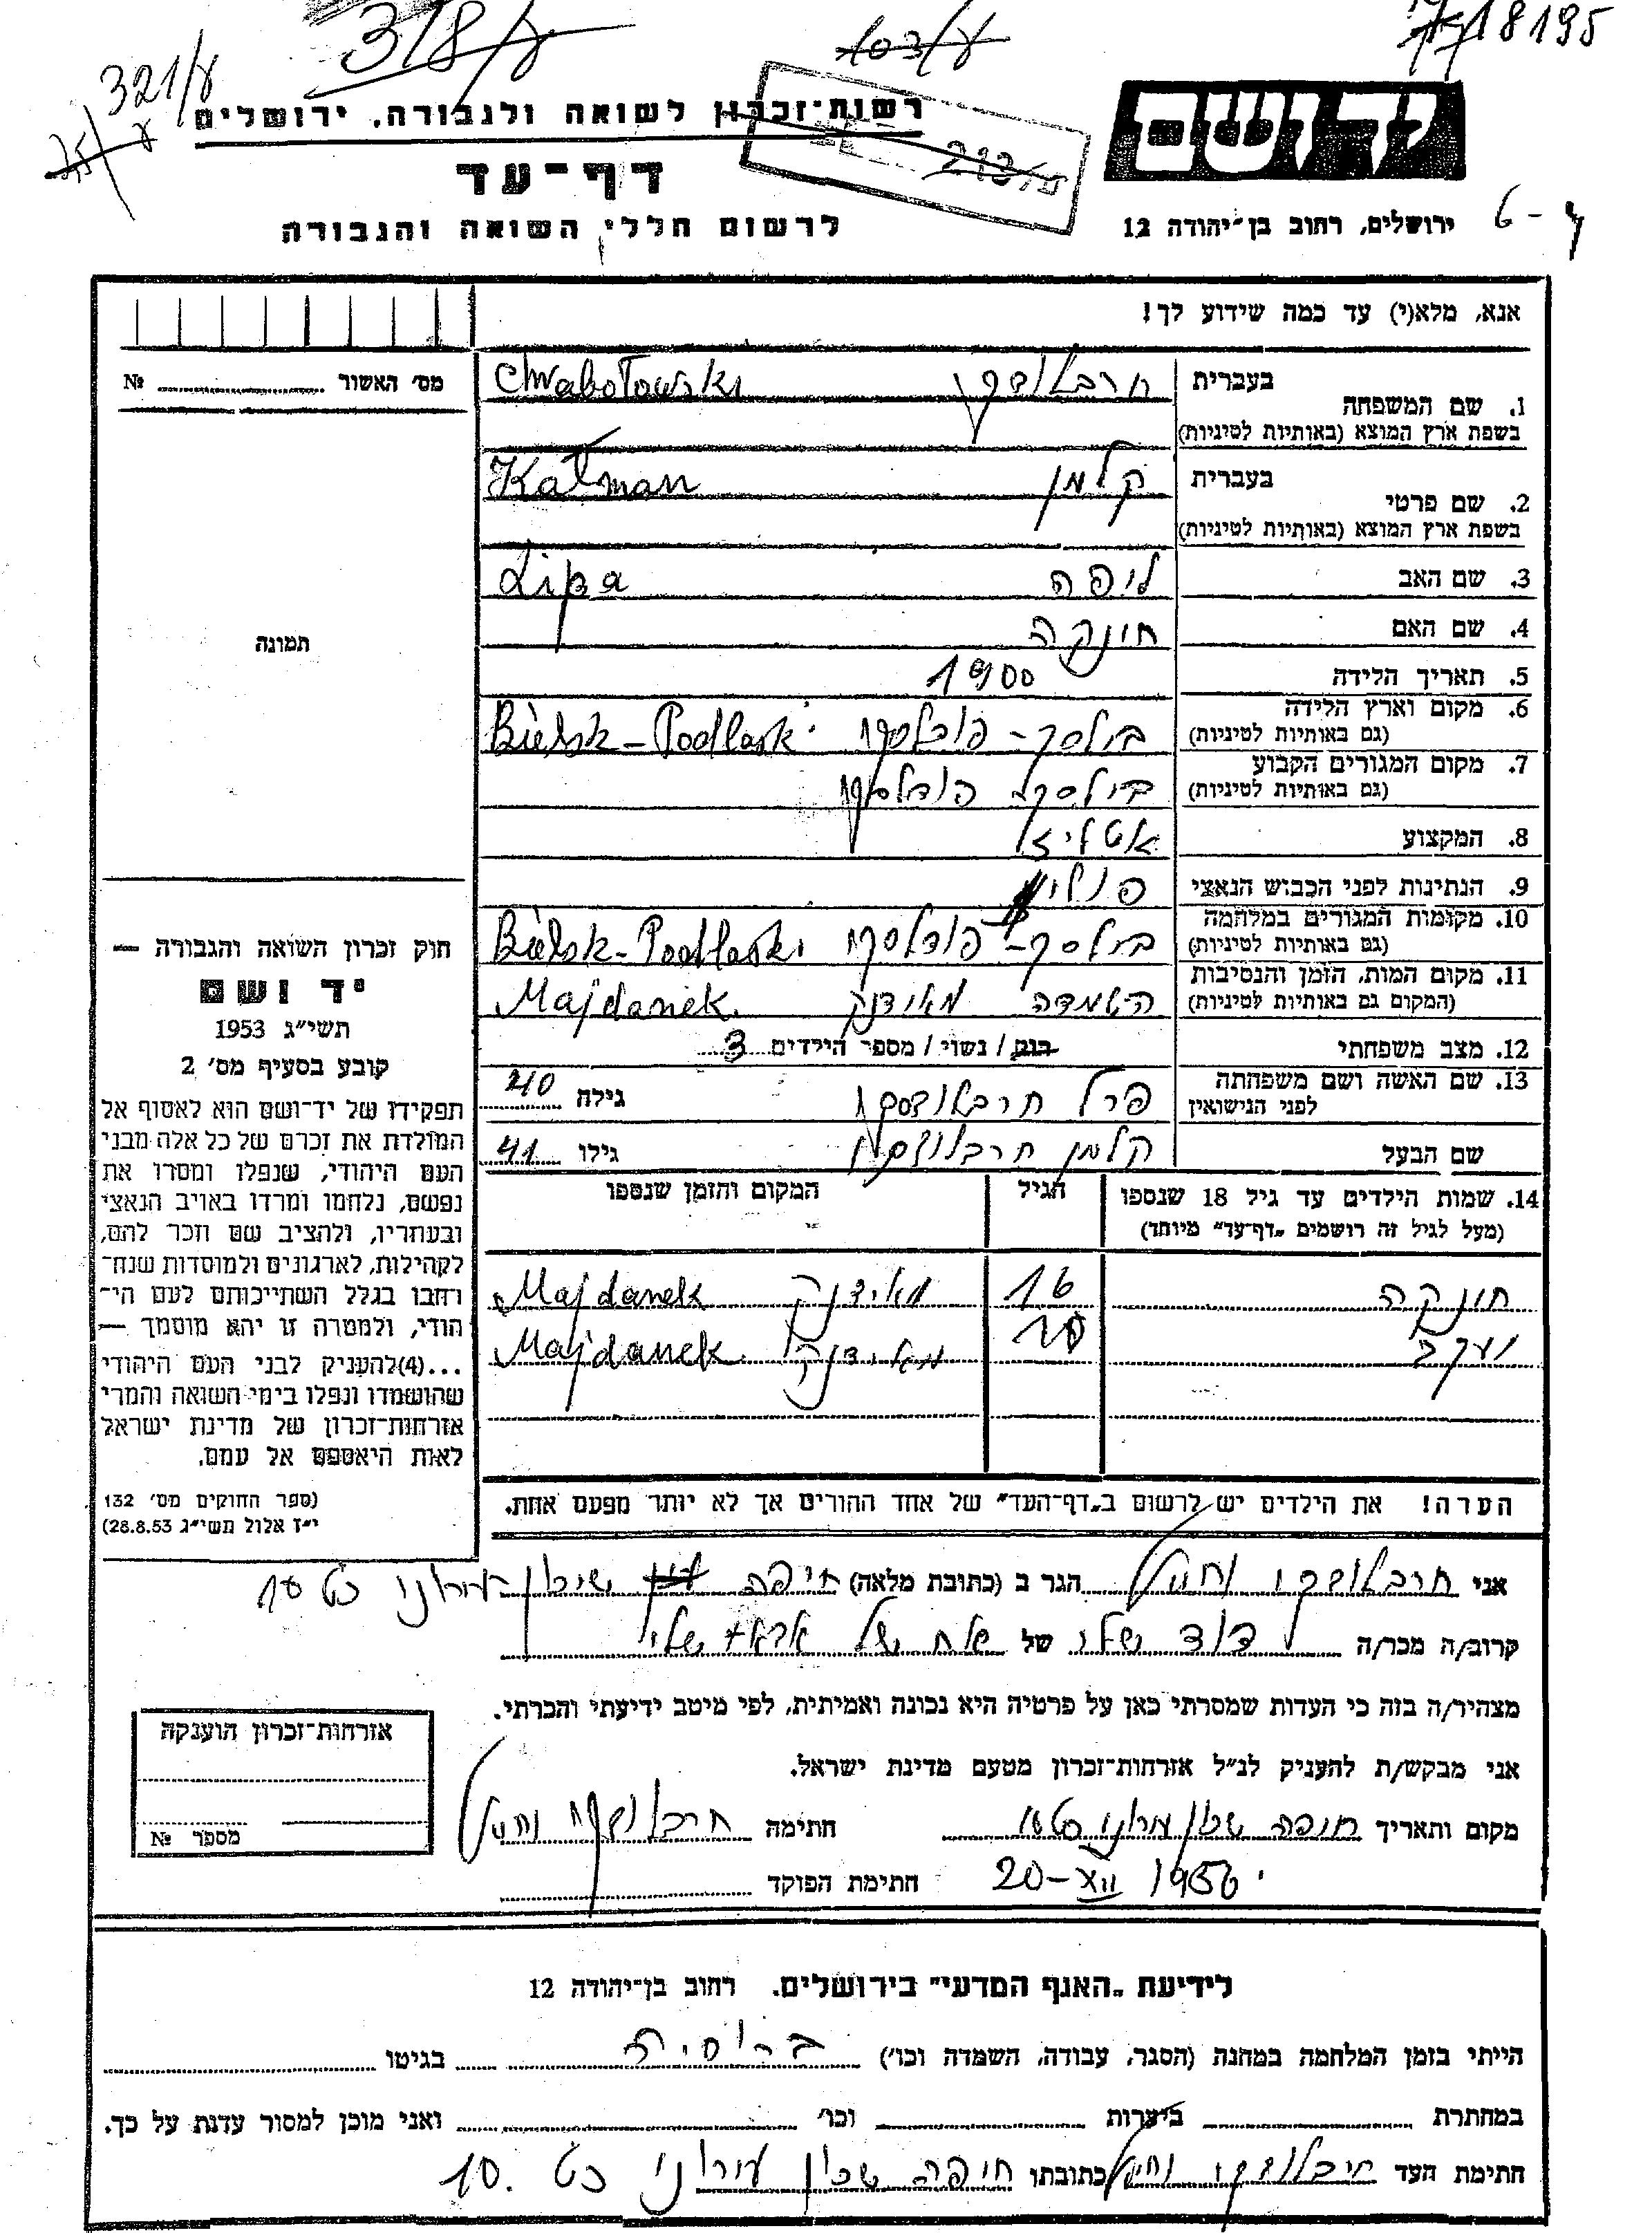 18195
318/ע
103/ע
321/ע
75/ע
213/ע
יד ושם
רשות־זכרון לשואה ולגבורה, ירושלים
דף־עד
לרשום חללי השואה והגבורה
ירושלים, רחוב בן־יהודה 12
אנא, מלא(י) עד כמה שידוע לך!
מס׳ האשור № 
1. שם המשפחה בעברית חרבלובסקי Chrabołowski
בשפת ארץ המוצא (באותיות לטיניות)
2. שם פרטי בעברית קלמן Kałman
בשפת ארץ המוצא (באותיות לטיניות)
3. שם האב ליפה Lipa
4. שם האם חונקה
5. תאריך הלידה 1900
6. מקום וארץ הלידה בילסק - פודלסקי Bielsk - Podlaski
(גם באותיות לטיניות)
7. מקום המגורים הקבוע בילסק פודלסקי
(גם באותיות לטיניות)
8. המקצוע אטליז
9. הנתינות לפני הכבוש הנאצי
10. מקומות המגורים במלחמה בילסק - פודלסקי Bielsk - Podlaski
(גם באותיות לטיניות)
11. מקום המות, הזמן והנסיבות השמדה מאידנק Majdanek
(המקום גם באותיות לטיניות)
12. מצב משפחתי רווק / נשוי / מספר הילדים 3
13. שם האשה ושם משפחתה פרל חרבלובסקי גילה 40
לפני הנישואין
שם הבעל קלמן חרבלובסקי גילו 41
14. שמות הילדים עד גיל 18 שנספו הגיל המקום והזמן שנספו
(מעל לגיל זה רושמים „דף־עד״ מיוחד)
חונקה 16 מאידנק Majdanek
יעקב 10 מאידנק Majdanek
הערה! את הילדים יש לרשום ב„דף־העד״ של אחד ההורים אך לא יותר מפעם אחת.
תמונה
חוק זכרון השואה והגבורה —
יד ושם
תשי״ג 1953
קובע בסעיף מס׳ 2
תפקידו של יד־ושם הוא לאסוף אל
המולדת את זכרם של כל אלה מבני
העם היהודי, שנפלו ומסרו את
נפשם, נלחמו ומרדו באויב הנאצי
ובעוזריו, ולהציב שם וזכר להם,
לקהילות, לארגונים ולמוסדות שנח־
רבו בגלל השתייכותם לעם הי־
הודי, ולמטרה זו יהא מוסמך —
...(4)להעניק לבני העם היהודי
שהושמדו ונפלו בימי השואה והמרי
אזרחות־זכרון של מדינת ישראל
לאות היאספם אל עמם.
(ספר החוקים מס׳ 132
י״ז אלול תשי״ג 28.8.53)
אני חרבלובסקי הגר ב (כתובת מלאה) חיפה שיכון עירוני 10
קרוב/ה מכר/ה דוד שלי של אח של אבא שלי
מצהיר/ה בזה כי העדות שמסרתי כאן על פרטיה היא נכונה ואמיתית, לפי מיטב ידיעתי והכרתי.
אני מבקש/ת להעניק לנ״ל אזרחות־זכרון מטעם מדינת ישראל.
מקום ותאריך חיפה שכון עירוני חתימה חרבלובסקי
20-XII 1956 חתימת הפוקד
אזרחות־זכרון הוענקה
מספר №
לידיעת „האגף המדעי״ בירושלים. רחוב בן־יהודה 12
הייתי בזמן המלחמה במחנה (הסגר, עבודה, השמדה וכו׳) ברוסיה בגיטו
במחתרת ביערות וכו׳ ואני מוכן למסור עדות על כך.
חתימת העד חרבלובסקי כתובתו חיפה שכון עירוני 10.